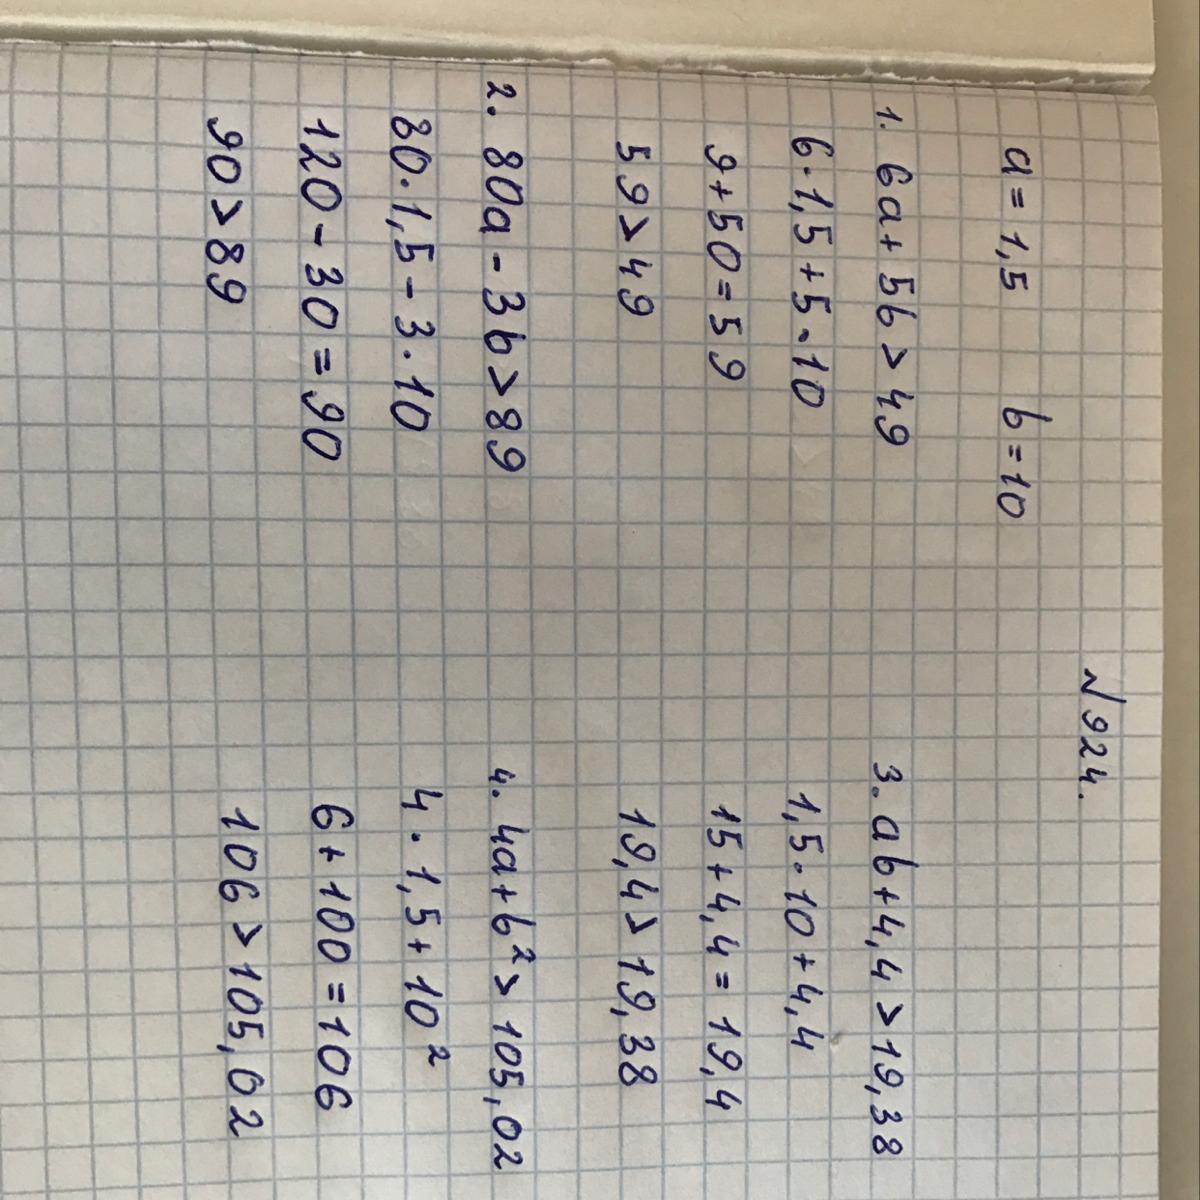 №924.
a = 1,5   b = 10
1. 6a + 5b > 49
6 · 1,5 + 5 · 10
9 + 50 = 59
59 > 49
2. 80a - 3b > 89
80 · 1,5 - 3 · 10
120 - 30 = 90
90 > 89
3. ab + 4,4 > 19,38
1,5 · 10 + 4,4
15 + 4,4 = 19,4
19,4 > 19,38
4. 4a + b² > 105,02
4 · 1,5 + 10²
6 + 100 = 106
106 > 105,02